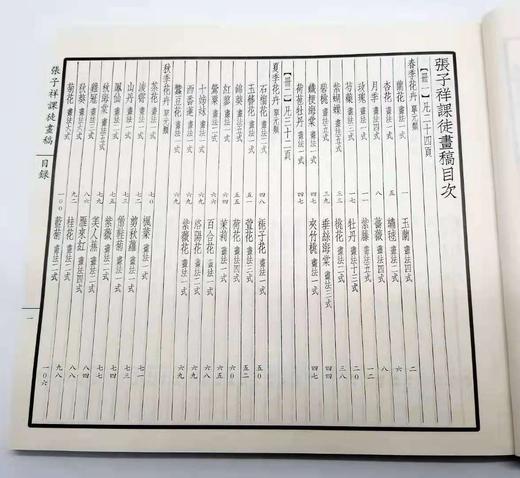 張子祥課徒畫稿目次
【冊一】凡二十四頁
春季花卉 單元類
蘭花 畫法一式 一 玉蘭 畫法四式 二
杏花 畫法一式 五 繡毬 畫法二式 六
月季 畫法四式 八 薔薇 畫法四式
玫瑰 畫法 一一 紫藤 畫法五式 一二
芍藥 畫法 牡丹 畫法十三式 一八
紫蝴蝶 畫法 三三 桃花 畫法二式 三八
碧桃 畫法 三九 垂絲海棠 畫法三式 四四
鐵梗海棠 畫法一式 四七 夾竹桃 畫法一式 四七
荷苞牡丹 畫法一式 四七
【冊二】凡三十二頁
夏季花卉 單元類
石榴花 畫法二式 四八 梔子花 畫法一式 五〇
玉簪花 畫法一式 五一 萱花 畫法三式 五二
錦葵 畫法 五五 荷花 畫法四式 六〇
紅蓼 畫法一式 六四 茉莉 畫法一式 六五
鶯粟 畫法二式 六六 百合花 畫法一式 六七
十姊妹 畫法一式 六八 洛陽花 畫法一式 六八
西番蓮 畫法一式 六九 紫薇花 畫法一式 六九
蠶豆花 畫法一式 六九
秋季花卉 單元類
茶花 畫法一式 七〇 楓葉 畫法一式 七一
凌霄 畫法 剪秋蘿 畫法一式
山丹 畫法一式 七三 僧鞋菊 畫法一式 七三
鳳仙 畫法 七四 紫薇 畫法 七四
秋海棠 畫法 七七 美人蕉 畫法二式 七七
雞冠 畫法三式 雁來紅 畫法四式 八四
秋葵 畫法六式 八六 桂花 畫法二式 八八
菊花 畫法六式 九二 菊 畫法二式 九八
一〇〇 一〇六
張子祥課徒畫稿 目錄 一